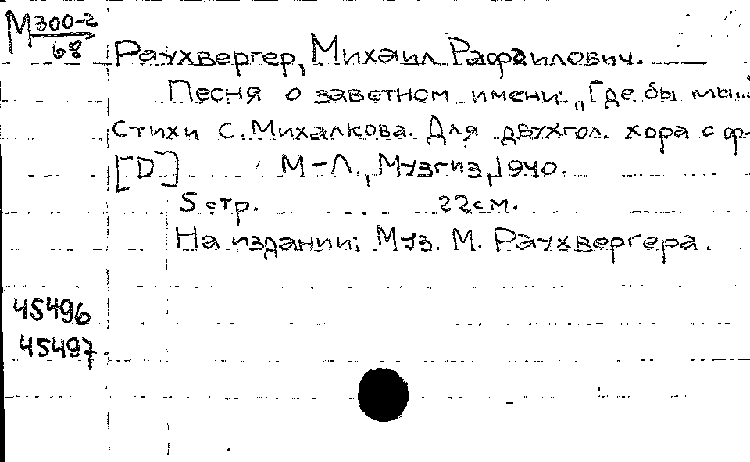 М 300-2
68
Раухвергер, Михаил Рафаилович.
Песня о заветном имени: „Где бы мы...
Стихи С. Михалкова. Для двухгол. хора с ф-
[D] М-Л., Музгиз, 1940.
5 стр. 22см.
На издании: Муз. М. Раухвергера.
45496
45497